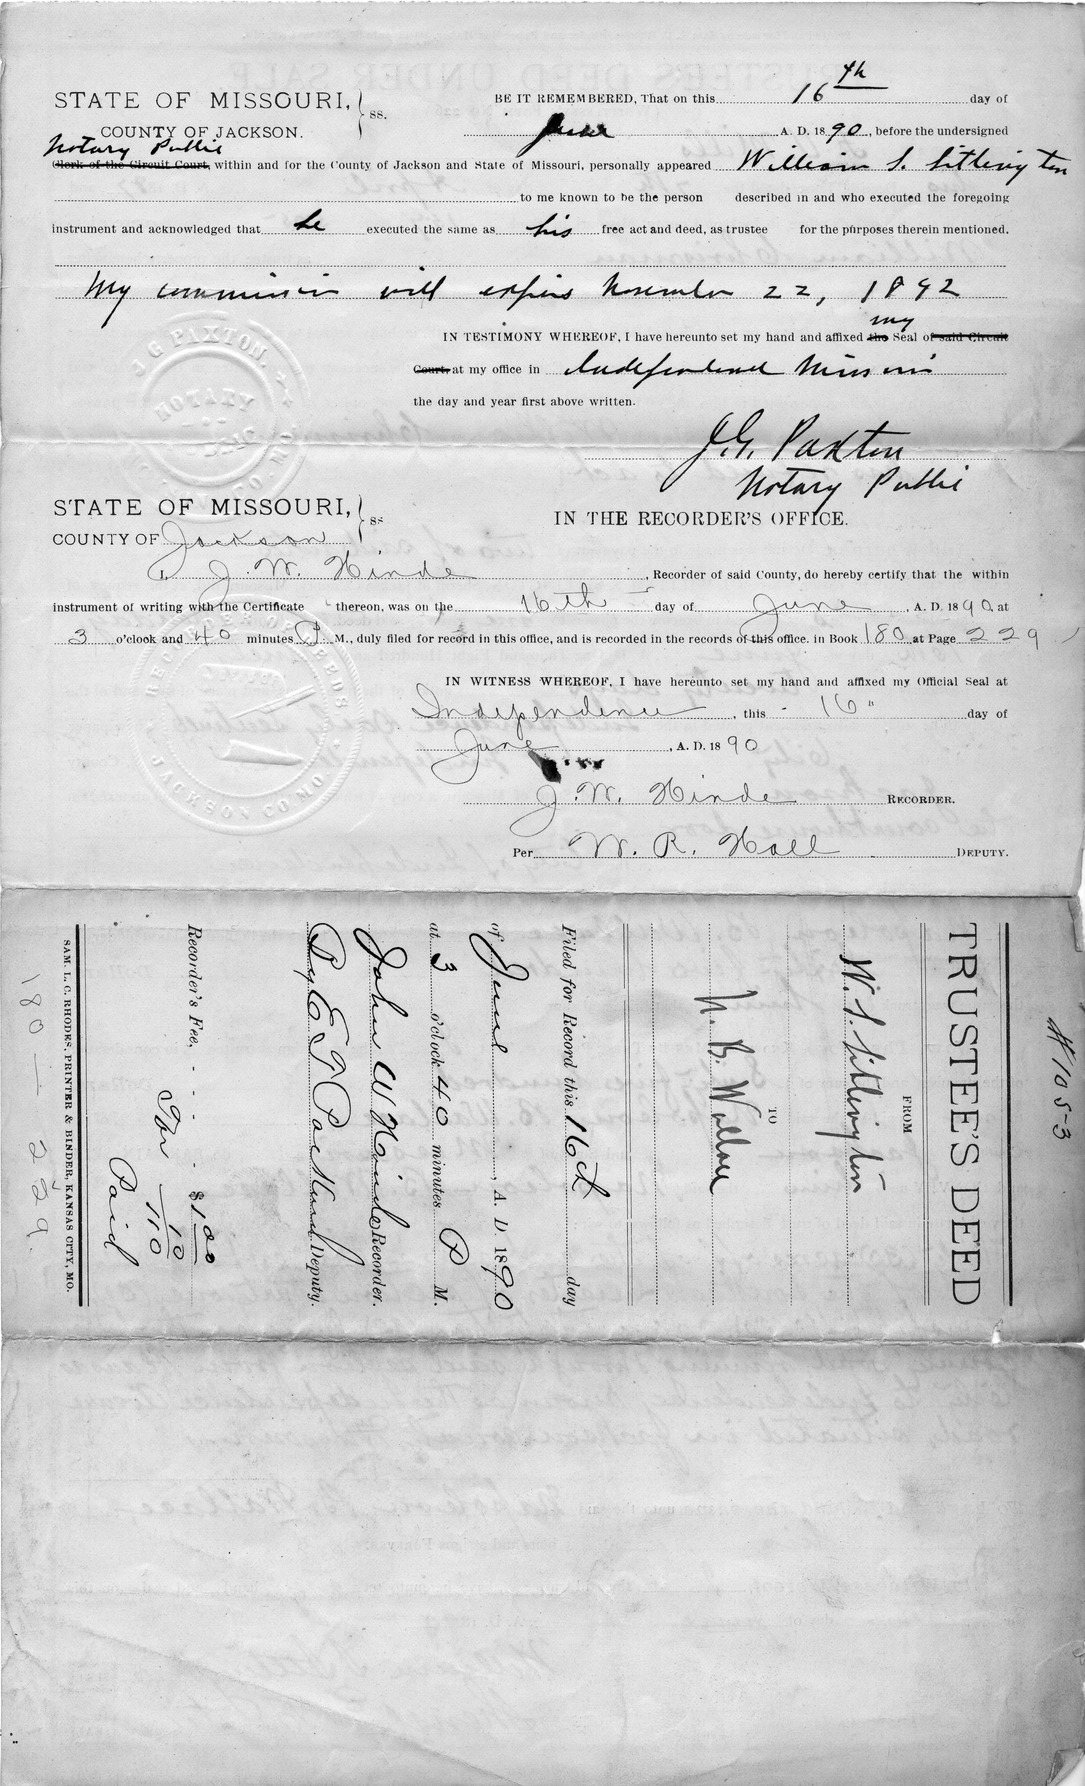 STATE OF MISSOURI, } ss.
COUNTY OF JACKSON.
BE IT REMEMBERED, That on this 16th day of
June A. D. 1890, before the undersigned
Notary Public
Clerk of the Circuit Court, within and for the County of Jackson and State of Missouri, personally appeared William S. Sitlington
to me known to be the person described in and who executed the foregoing
instrument and acknowledged that he executed the same as his free act and deed, as trustee for the purposes therein mentioned.
My commission will expire November 22, 1892
my
IN TESTIMONY WHEREOF, I have hereunto set my hand and affixed the Seal of said Circuit
Court, at my office in Independence Missouri
the day and year first above written.
J G PAXTON.
NOTARY
J.G. Paxton
Notary Public
STATE OF MISSOURI, } ss
COUNTY OF Jackson
IN THE RECORDER'S OFFICE.
I, J. W. Hinde, Recorder of said County, do hereby certify that the within
instrument of writing with the Certificate thereon, was on the 16th day of June, A. D. 1890 at
3 o'clock and 40 minutes P. M., duly filed for record in this office, and is recorded in the records of this office, in Book 180 at Page 229
IN WITNESS WHEREOF, I have hereunto set my hand and affixed my Official Seal at
Independence, this 16" day of
June, A. D. 1890
RECORDER OF DEEDS
JACKSON CO MO.
J. W. Hinde RECORDER.
Per W. R. Hall DEPUTY.
#1053
TRUSTEE'S DEED
FROM
W. S. Sitlington
TO
N. B. Wallace
Filed for Record this 16th day
of June, A. D. 1890
at 3 o'clock 40 minutes P M.
John W Hinde Recorder.
By E. T. Deputy.
Recorder's Fee, - - - - $1.00
10
110
Paid
SAM. L. C. RHODES, PRINTER & BINDER, KANSAS CITY, MO.
180 — 229.